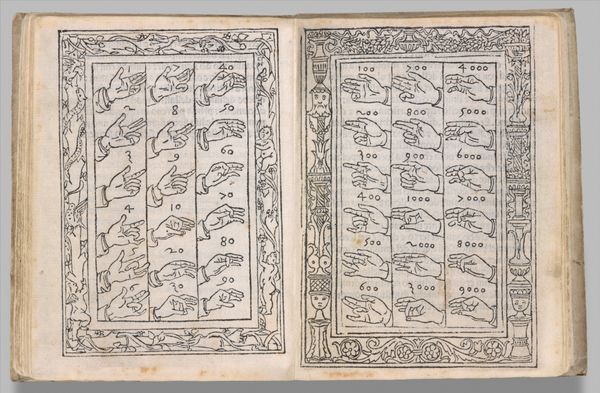 1 7 40
2 8 50
3 9 60
4 10 70
20 80
30 90
100 700 4000
200 800 5000
300 900 6000
400 1000 7000
500 2000 8000
600 3000 9000